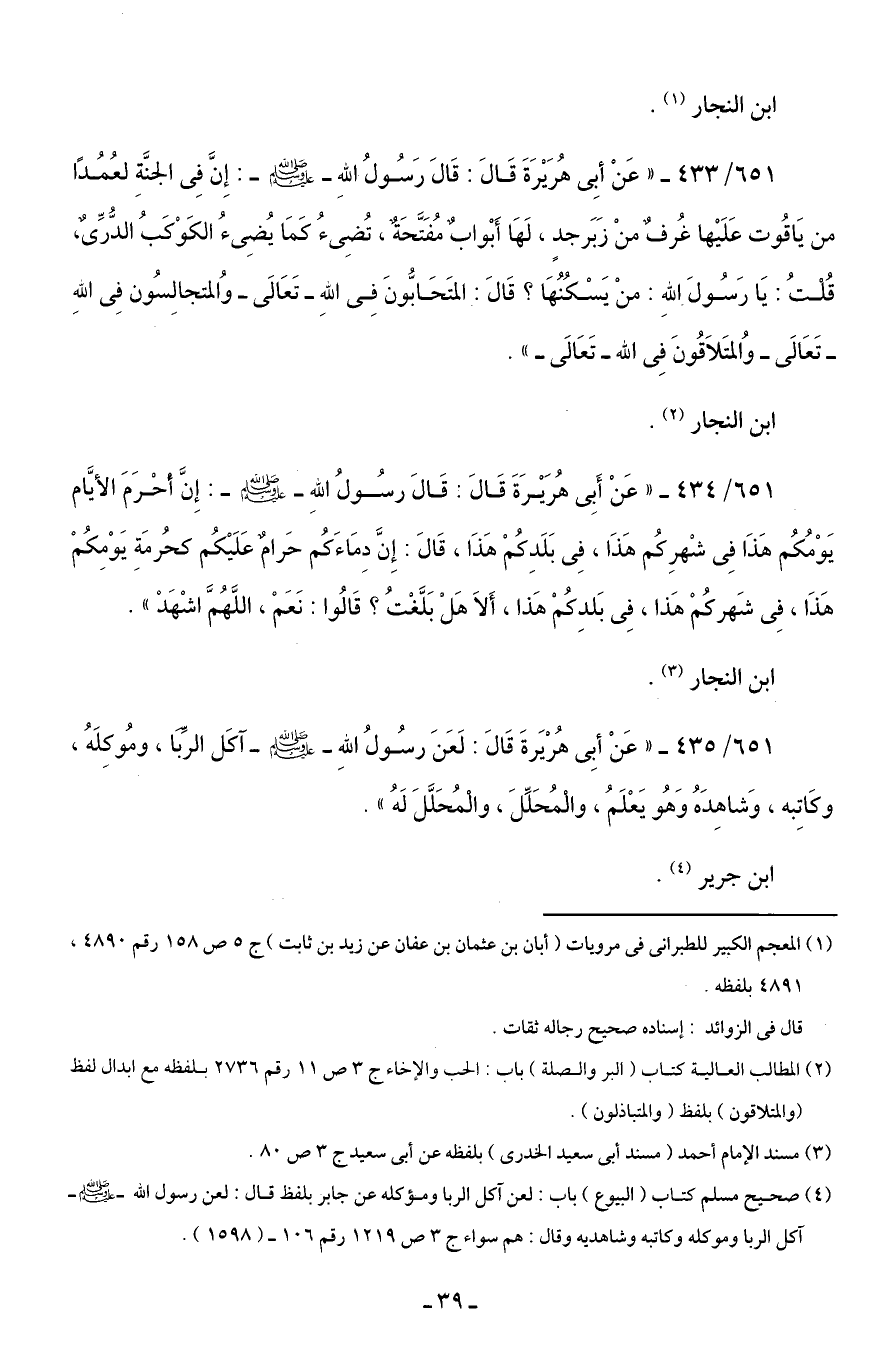 ابن النجار (١) .
٤٣٣/٦٥١ ـ « عَنْ أَبِى هُرَيْرَةَ قَالَ : قَالَ رَسُولُ اللهِ ـ ﷺ ـ : إِنَّ فِى الجنَّةِ لَعُمُدًا
من يَاقُوت عَلَيْها غُرفٌ منْ زَبَرجدٍ ، لَهَا أَبْوابٌ مُفَتَّحَةٌ ، تُضِىءُ كَمَا يُضِىءُ الكَوْكَبُ الدُّرِّىُّ،
قُلْتُ : يَا رَسُولَ اللهِ : منْ يَسْكُنُهَا ؟ قَالَ : المتَحَابُّونَ فِى اللهِ ـ تَعَالَى ـ والُمتجالِسُون فِى اللهِ
ـ تَعَالَى ـ والُمتَلاَقُونَ فِى الله ـ تَعَالَى ـ » .
ابن النجار (٢) .
٤٣٤/٦٥١ ـ « عَنْ أَبِى هُرَيْرَةَ قَالَ : قَالَ رسُولُ اللهِ ـ ﷺ ـ : إِنَّ أَحْرَمَ الأيَّامِ
يَوْمُكُم هَذَا فِى شهْرِكُم هَذَا ، فِى بَلَدِكُمْ هَذَا ، قَالَ : إِنَّ دِمَاءَكُم حَرامٌ عَلَيْكُم كحُرمَةِ يَوْمِكُمْ
هَذَا ، فِى شَهرِكُمْ هَذا ، فِى بَلدِكُمْ هَذا ، أَلاَ هَلْ بَلَّغْتُ ؟ قَالُوا : نَعَمْ ، اللَّهُمَّ اشْهَدْ » .
ابن النجار (٣) .
٤٣٥/٦٥١ ـ « عَنْ أَبِى هُرْيَرةَ قَالَ : لَعَنَ رسُولُ اللهِ ـ ﷺ ـ آكلَ الربِّا ، ومُوكلَهُ ،
وكَاتِبه ، وَشاهِدَهُ وَهُو يَعْلَمُ ، والْمُحَلِّلَ ، والْمُحَلَّلَ لَهُ » .
ابن جرير (٤) .
(١) المعجم الكبير للطبرانى فى مرويات ( أبان بن عثمان بن عفان عن زيد بن ثابت ) ج ٥ ص ١٥٨ رقم ٤٨٩٠ ،
٤٨٩١ بلفظه .
قال فى الزوائد : إسناده صحيح رجاله ثقات .
(٢) المطالب العالية كتاب ( البر والصلة ) باب : الحب والإخاء ج ٣ ص ١١ رقم ٢٧٣٦ بلفظه مع ابدال لفظ
(والمتلاقون ) بلفظ ( والمتباذلون ) .
(٣) مسند الإمام أحمد ( مسند أبى سعيد الخدرى ) بلفظه عن أبى سعيد ج ٣ ص ٨٠ .
(٤) صحيح مسلم كتاب ( البيوع ) باب : لعن آكل الربا ومؤكله عن جابر بلفظ قال : لعن رسول الله ـ ﷺ ـ
آكل الربا وموكله وكاتبه وشاهديه وقال : هم سواء ج ٣ ص ١٢١٩ رقم ١٠٦ ـ ( ١٥٩٨ ) .
ـ ٣٩ ـ